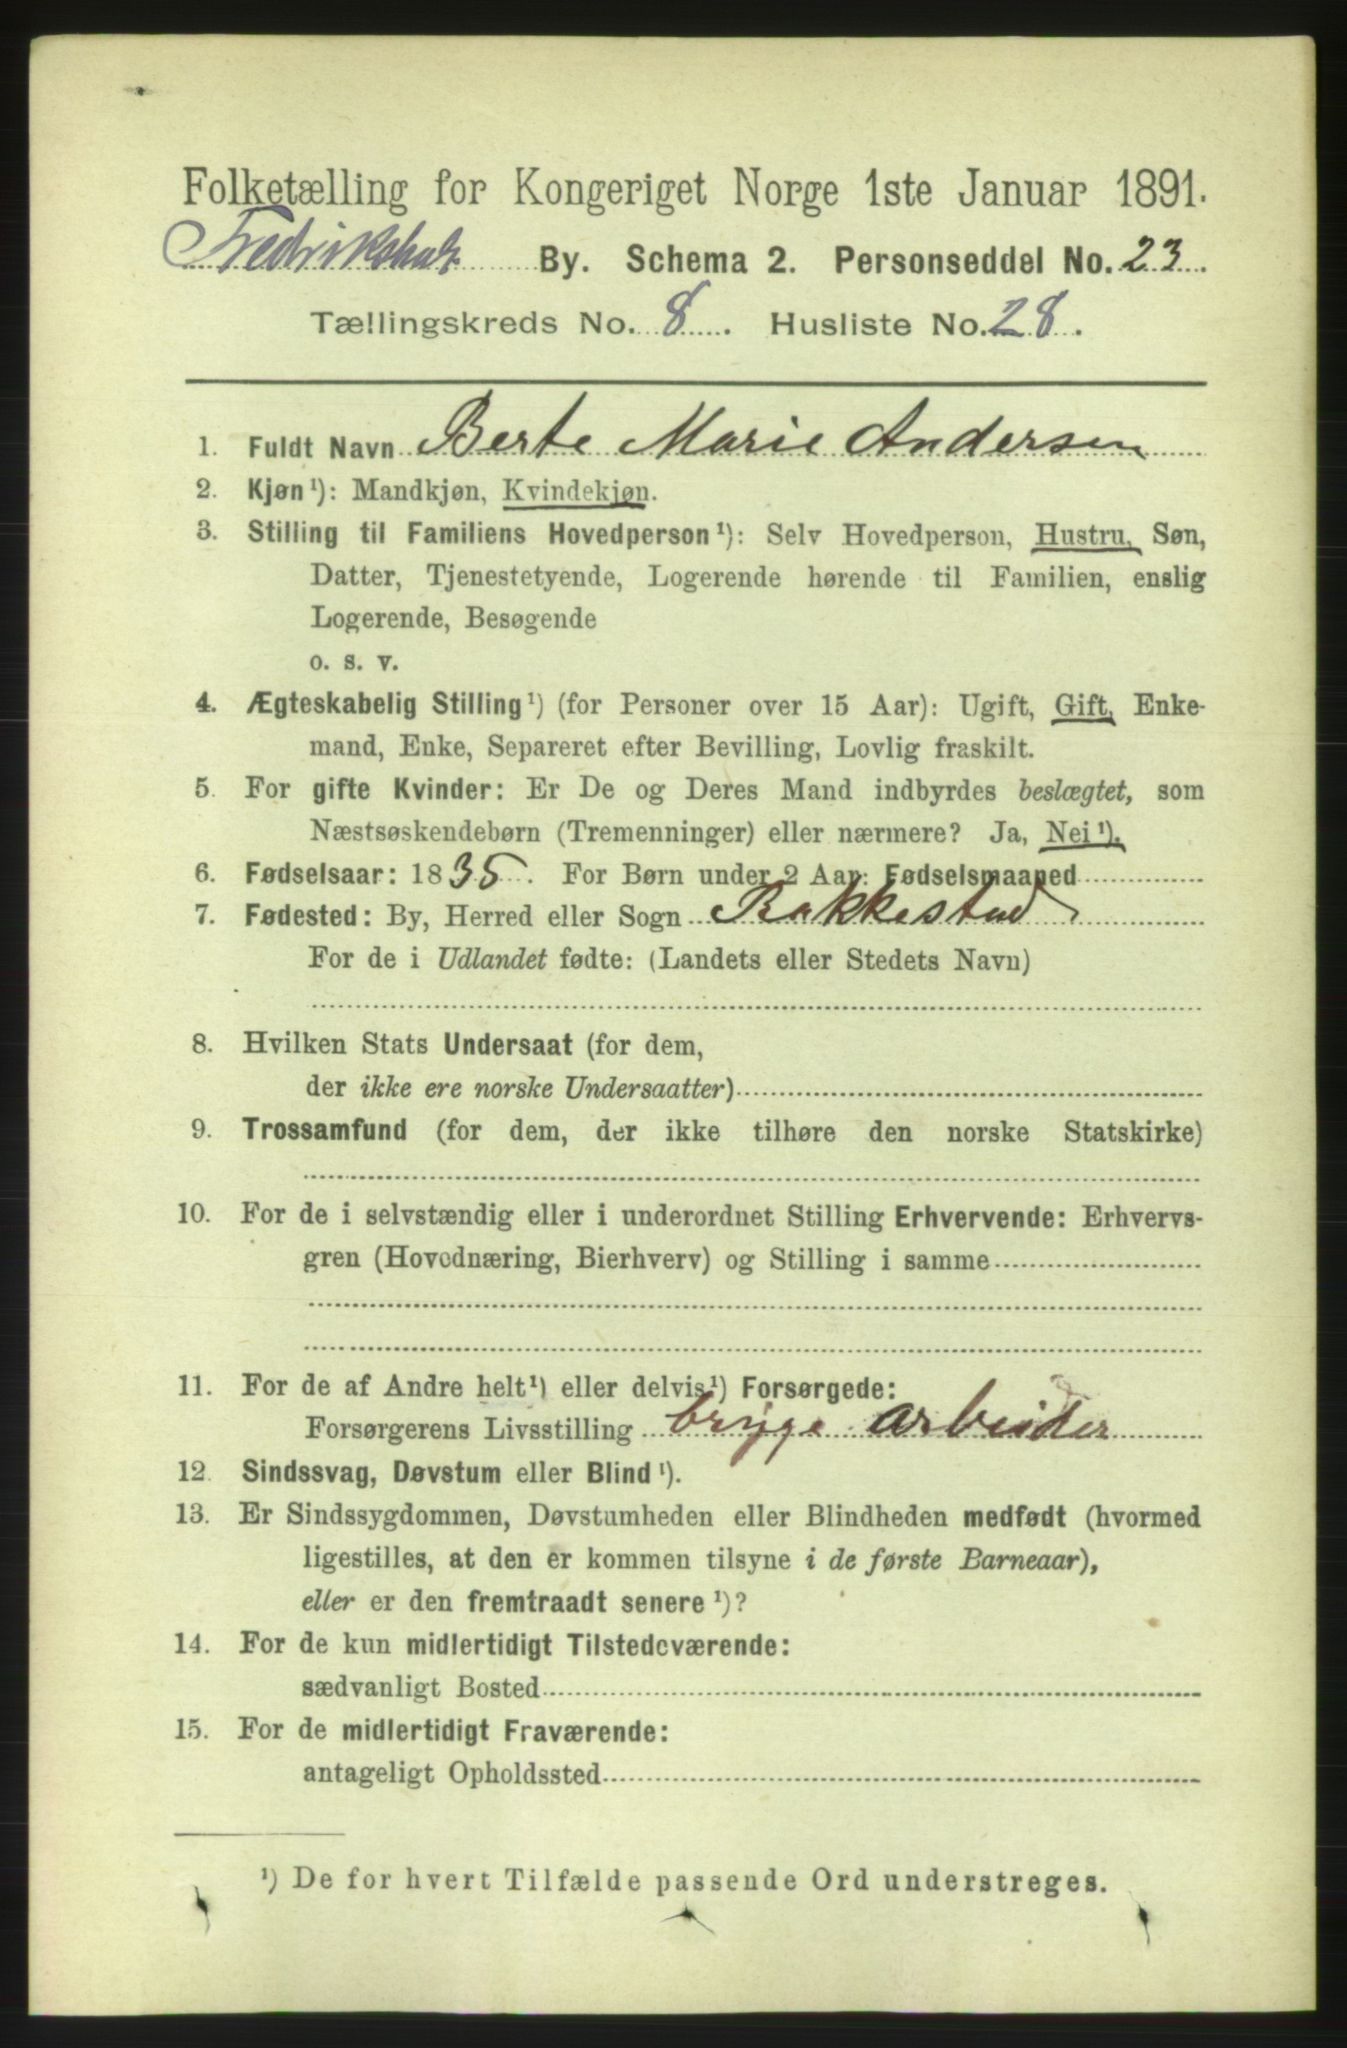 Folketælling for Kongeriget Norge 1ste Januar 1891.
Fredrikshald By. Schema 2. Personseddel No. 23
Tællingskreds No. 8. Husliste No. 28.
1. Fuldt Navn Berte Marie Andersen
2. Kjøn¹): Mandkjøn, Kvindekjøn.
3. Stilling til Familiens Hovedperson¹): Selv Hovedperson, Hustru, Søn,
Datter, Tjenestetyende, Logerende hørende til Familien, enslig
Logerende, Besøgende
o. s. v.
4. Ægteskabelig Stilling¹) (for Personer over 15 Aar): Ugift, Gift, Enke-
mand, Enke, Separeret efter Bevilling, Lovlig fraskilt.
5. For gifte Kvinder: Er De og Deres Mand indbyrdes beslægtet, som
Næstsøskendebørn (Tremenninger) eller nærmere? Ja, Nei¹).
6. Fødselsaar: 1835. For Børn under 2 Aar: Fødselsmaaned
7. Fødested: By, Herred eller Sogn Rakkestad
For de i Udlandet fødte: (Landets eller Stedets Navn)
8. Hvilken Stats Undersaat (for dem,
der ikke ere norske Undersaatter)
9. Trossamfund (for dem, der ikke tilhøre den norske Statskirke)
10. For de i selvstændig eller i underordnet Stilling Erhvervende: Erhvervs-
gren (Hovednæring, Bierhverv) og Stilling i samme
11. For de af Andre helt¹) eller delvis¹) Forsørgede:
Forsørgerens Livsstilling brygge arbeider
12. Sindssvag, Døvstum eller Blind¹).
13. Er Sindssygdommen, Døvstumheden eller Blindheden medfødt (hvormed
ligestilles, at den er kommen tilsyne i de første Barneaar),
eller er den fremtraadt senere¹)?
14. For de kun midlertidigt Tilstedeværende:
sædvanligt Bosted
15. For de midlertidigt Fraværende:
antageligt Opholdssted
¹) De for hvert Tilfælde passende Ord understreges.